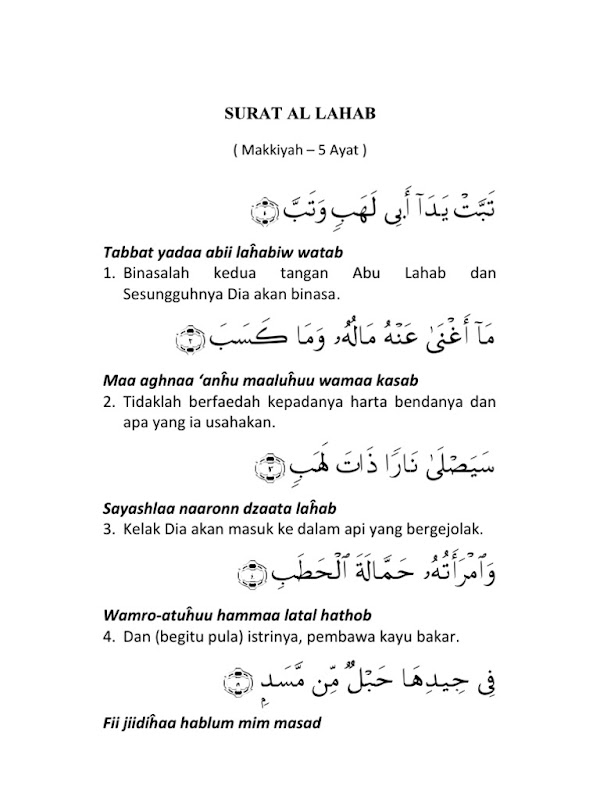 SURAT AL LAHAB
( Makkiyah – 5 Ayat )
تَبَّتْ يَدَآ أَبِى لَهَبٍ وَتَبَّ ﴿١﴾
Tabbat yadaa abii laĥabiw watab
1. Binasalah kedua tangan Abu Lahab dan
Sesungguhnya Dia akan binasa.
مَآ أَغْنَىٰ عَنْهُ مَالُهُۥ وَمَا كَسَبَ ﴿٢﴾
Maa aghnaa ‘anĥu maaluĥuu wamaa kasab
2. Tidaklah berfaedah kepadanya harta bendanya dan
apa yang ia usahakan.
سَيَصْلَىٰ نَارًا ذَاتَ لَهَبٍ ﴿٣﴾
Sayashlaa naaronn dzaata laĥab
3. Kelak Dia akan masuk ke dalam api yang bergejolak.
وَٱمْرَأَتُهُۥ حَمَّالَةَ ٱلْحَطَبِ ﴿٤﴾
Wamro-atuĥuu hammaa latal hathob
4. Dan (begitu pula) istrinya, pembawa kayu bakar.
فِى جِيدِهَا حَبْلٌ مِّن مَّسَدٍۭ ﴿٥﴾
Fii jiidiĥaa hablum mim masad